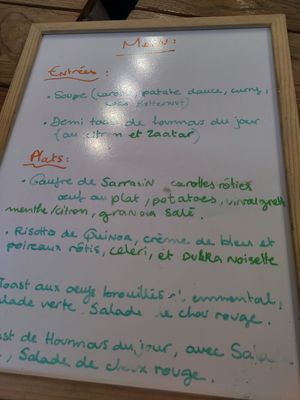 Menu:
Entrées :
• Soupe (carotte, patate douce, curry,
coco Butternut)
• Demi toast de houmous du jour
(au citron et zaatar)
Plats:
• Gaufre de Sarrasin carottes rôties
oeuf au plat, potatoes, vinaigrette
menthe/citron, granola salé.
• Risotto de Quinoa, crème de bleu et
poireaux rôtis, céleri, et dukka noisette
Toast aux oeufs brouillés emmental,
salade verte Salade de chou rouge.
ast de Houmous du jour, avec
, Salade de choux rouge.